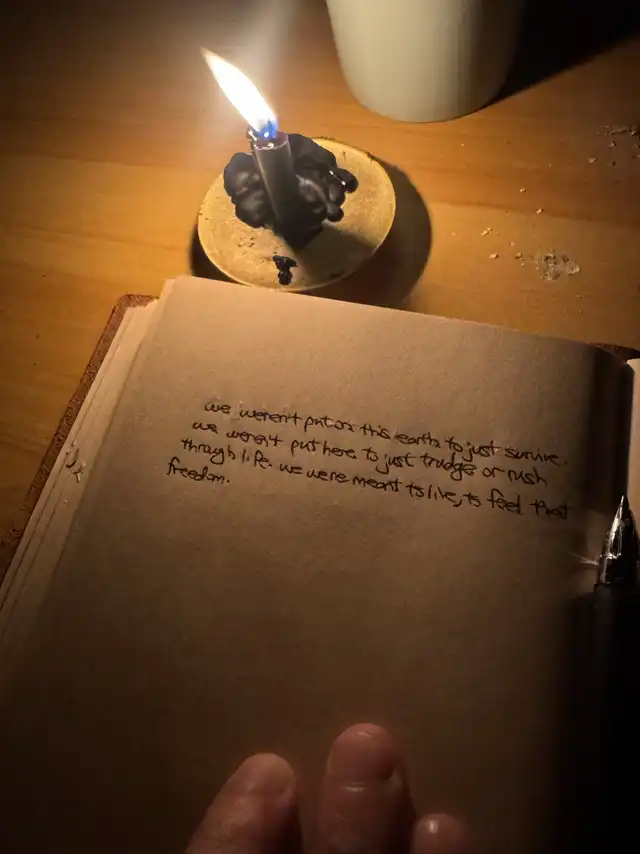 we weren't put on this earth to just survive.
we weren't put here to just trudge or rush
through life. we were meant to live, to feel that
freedom.